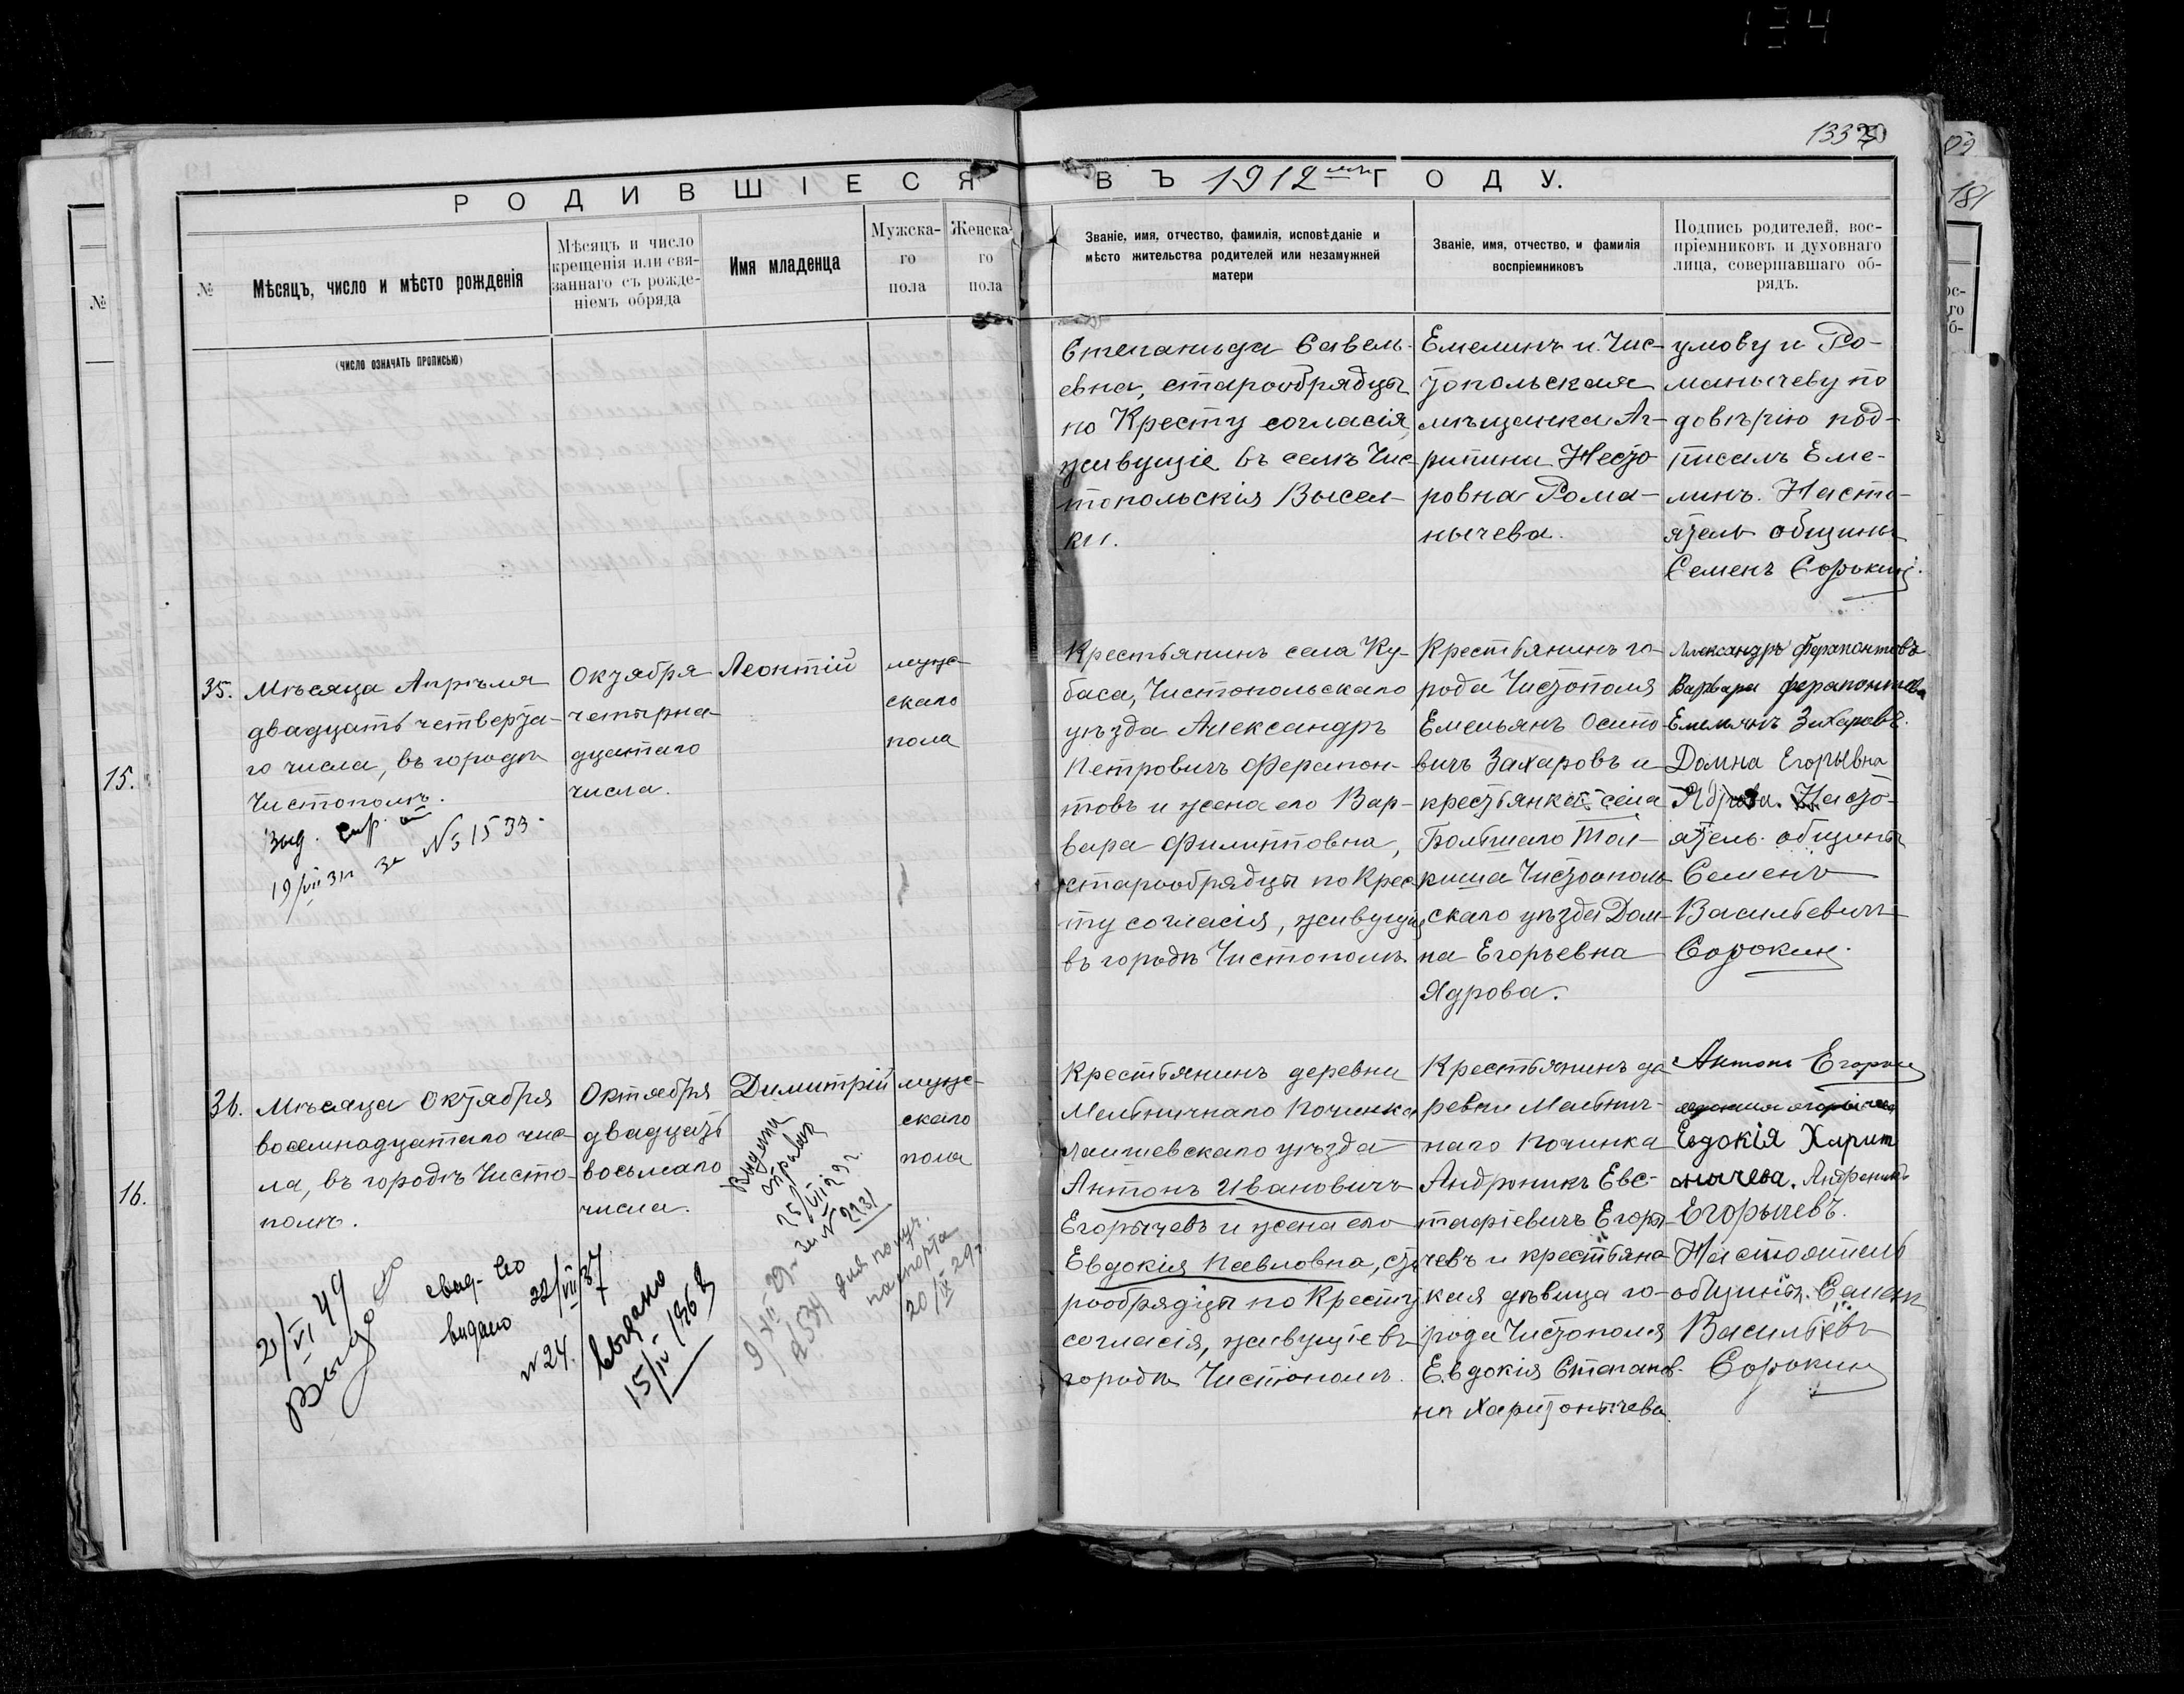 134
133
Р О Д И В Ш І Е С Я В Ъ 1912 мъ Г О Д У.
№
Мѣсяцъ, число и мѣсто рожденія
(число означать прописью)
Мѣсяцъ и число
крещенія или свя-
заннаго съ рожде-
ніемъ обряда
Имя младенца
Мужска-
го
пола
Женска-
го
пола
Званіе, имя, отчество, фамилія, исповѣданіе и
мѣсто жительства родителей или незамужней
матери
Званіе, имя, отчество, и фамилія
воспріемниковъ
Подпись родителей, вос-
пріемниковъ и духовнаго
лица, совершавшаго об-
рядъ.
Степанида Савель-
евна, старообрядцы
по Кресту согласія,
живущіе въ селѣ Чис-
топольскія Высел-
ки.
Емелинъ и Чис-
топольская
мѣщанка Аг-
рипина Несто
ровна Рома-
нычева.
умову и Ро-
манычеву по
довѣрію под-
писалъ Еме-
линъ. Насто-
ятель общины
Семенъ Сорокинъ.
35.
Мѣсяца Апрѣля
двадцать четверта-
го числа, въ городѣ
Чистополѣ.
Выд. спр.
19/VII 31г за № 1533.
Октября
четырна-
дцатаго
числа.
Леонтій
муж-
скаго
пола
Крестьянинъ села Ку-
баса, Чистопольскаго
уѣзда Александръ
Петровичъ Ферапон-
товъ и жена его Вар-
вара Филипповна,
старообрядцы по Крес-
ту согласія, живущіе
въ городѣ Чистополѣ.
Крестьянинъ го-
рода Чистополя
Емельянъ Осипо-
вичъ Захаровъ и
крестьянка села
Большаго Тол-
киша Чистополь-
скаго уѣзда Дом-
на Егорьевна
Ядрова.
Александръ Ферапонтовъ
Варвара Ферапонтова
Емельянъ Захаровъ.
Домна Егорывна
Ядрова. Насто-
ятель общины
Семенъ
Васильевичъ
Сорокинъ.
36.
Мѣсяца Октября
восемнадцатаго чис-
ла, въ городѣ Чисто-
полѣ.
Октября
двадцать
восьмаго
числа.
Димитрій
муж-
скаго
пола
Крестьянинъ деревни
Мельничнаго Починка
Лаишевскаго уѣзда
Антонъ Ивановичъ
Егорычевъ и жена его
Евдокія Павловна, ста
рообрядцы по Кресту
согласія, живущіе въ
городѣ Чистополѣ.
Крестьянинъ де
ревни Мельнич-
наго Починка
Андроникъ Евс-
тафіевичъ Егоры-
чевъ и крестьянс-
кая дѣвица го-
рода Чистополя
Евдокія Степанов-
на Харитонычева.
Антонъ
Евдокія Харит
онычева. Андроникъ
Егорычевъ.
Настоятель
общины. Семенъ
Васильевъ
Сорокинъ
21/VI 49
Выдо
свид-во
видано 22/VII 37
№ 24.
Выдано
15/IV 1936 г
справка
25/VII 29 г.
за № 2231
9/XII 29г
№ 534 для получ.
паспорта
20/IX 29г
№
15.
16.
181